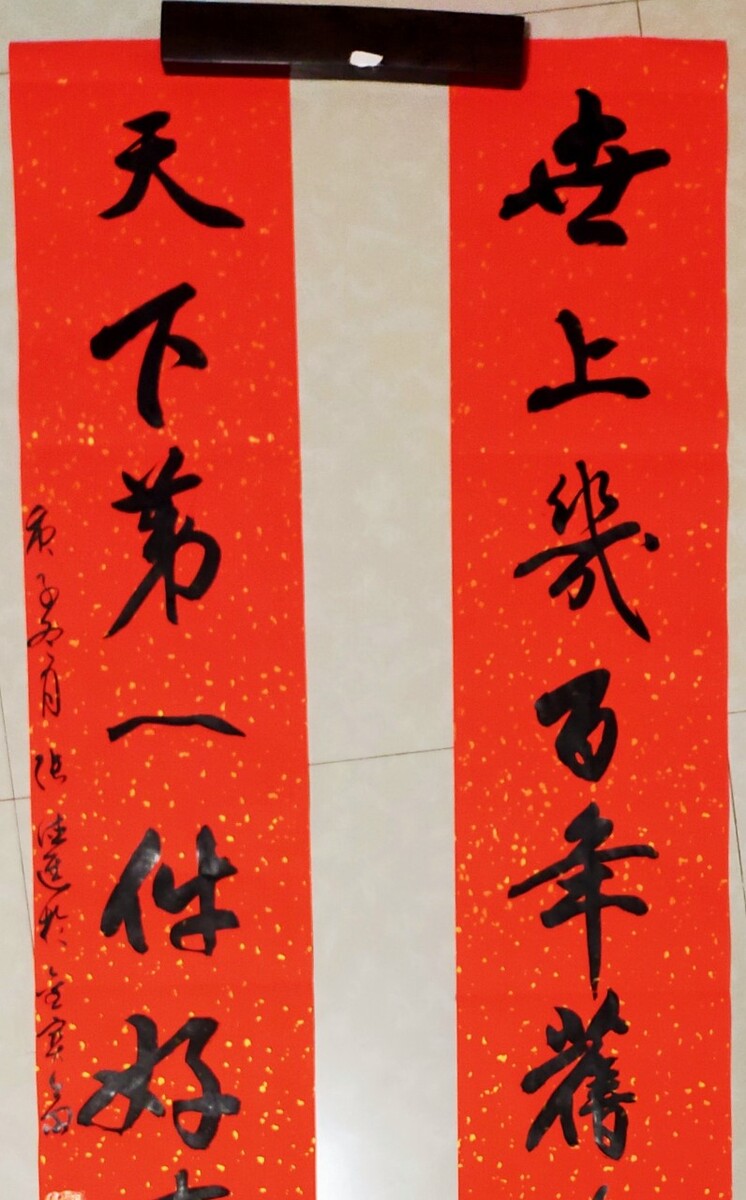 世上幾百年舊
天下第一件好
庚子冬月 張